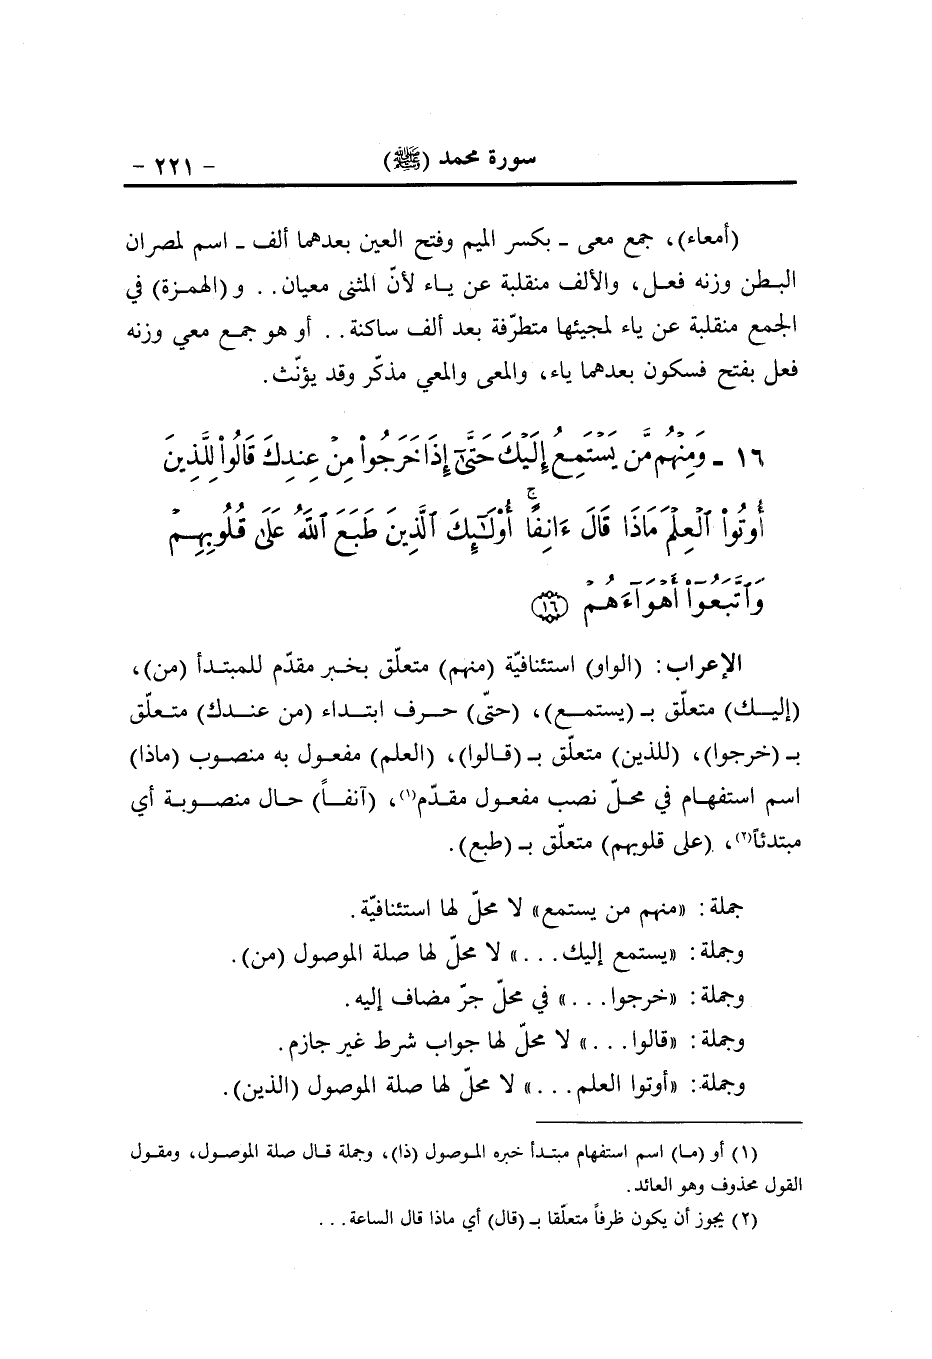 سورة محمد (ﷺ) - ٢٢١ -
(أمعاء)، جمع معى - بكسر الميم وفتح العين بعدهما ألف - اسم لمصران
البطن وزنه فعل، والألف منقلبة عن ياء لأنّ المثنى معيان.. و (الهمزة) في
الجمع منقلبة عن ياء لمجيئها متطرّفة بعد ألف ساكنة.. أو هو جمع معي وزنه
فعل بفتح فسكون بعدهما ياء، والمعى والمعي مذكّر وقد يؤنّث.
١٦ - وَمِنْهُم مَّن يَسْتَمِعُ إِلَيْكَ حَتَّىٰٓ إِذَا خَرَجُوا۟ مِنْ عِندِكَ قَالُوا۟ لِلَّذِينَ
أُوتُوا۟ ٱلْعِلْمَ مَاذَا قَالَ ءَانِفًا ۚ أُو۟لَٰٓئِكَ ٱلَّذِينَ طَبَعَ ٱللَّهُ عَلَىٰ قُلُوبِهِمْ
وَٱتَّبَعُوٓا۟ أَهْوَآءَهُمْ ﴿١٦﴾
الإعراب: (الواو) استئنافيّة (منهم) متعلّق بخبر مقدّم للمبتدأ (من)،
(إليك) متعلّق بـ (يستمع)، (حتّى) حرف ابتداء (من عندك) متعلّق
بـ (خرجوا)، (للذين) متعلّق بـ (قالوا)، (العلم) مفعول به منصوب (ماذا)
اسم استفهام في محلّ نصب مفعول مقدّم(١)، (آنفاً) حال منصوبة أي
مبتدئاً(٢)، (على قلوبهم) متعلّق بـ (طبع).
جملة: «منهم من يستمع» لا محلّ لها استئنافيّة.
وجملة: «يستمع إليك...» لا محلّ لها صلة الموصول (من).
وجملة: «خرجوا...» في محلّ جرّ مضاف إليه.
وجملة: «قالوا...» لا محلّ لها جواب شرط غير جازم.
وجملة: «أوتوا العلم...» لا محلّ لها صلة الموصول (الذين).
(١) أو (ما) اسم استفهام مبتدأ خبره الموصول (ذا)، وجملة قال صلة الموصول، ومقول
القول محذوف وهو العائد.
(٢) يجوز أن يكون ظرفاً متعلّقا بـ (قال) أي ماذا قال الساعة...